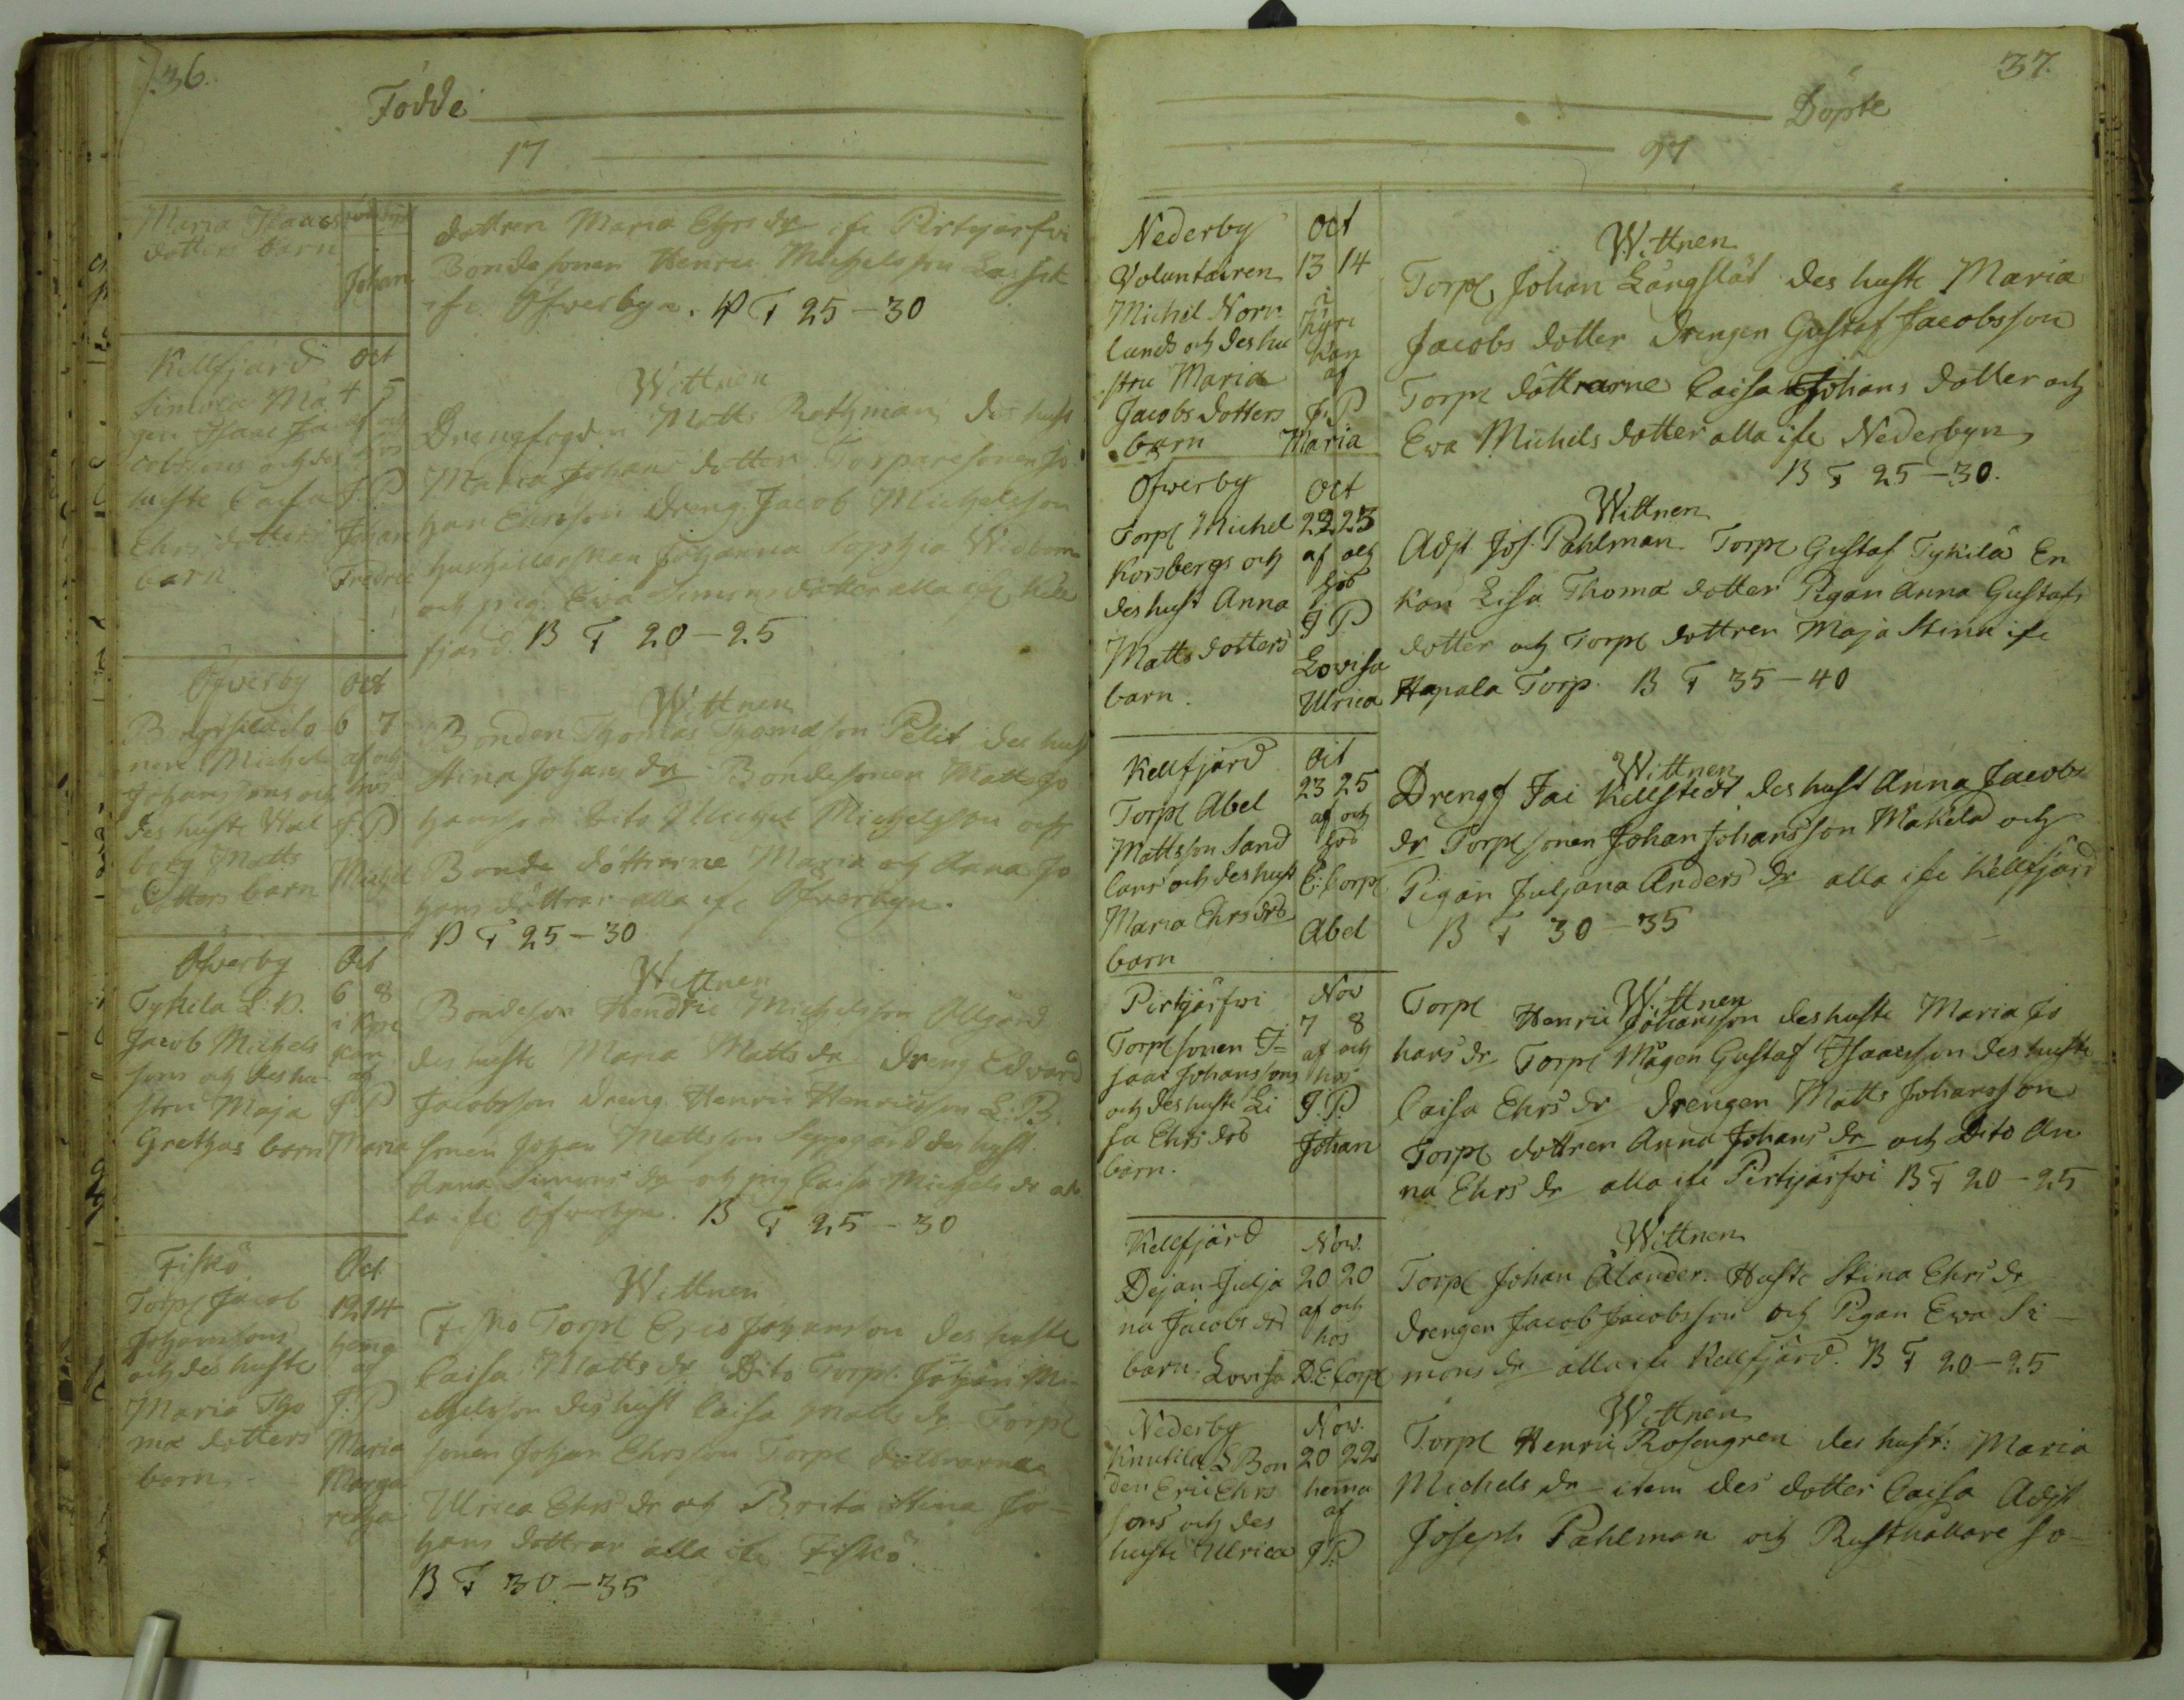 36.
Födde
17
Maria Isaacs
dotters barn
Johan
dottren Maria Ehrs dr ife Pirtijärfwi
Bondesonen Henric Michelsson Lassik
ife Öfwerbyn. B F 25-30
Kellfjärd Oct
Simola Må 4 5
gen Isaac Ja af och
cobssons och des hos
hustr Caisa J.P
Ehrs dotters Johan
barn Fredric
Wittnen
Drengfogd. Matts Rothman des hust
Maria Johans dotter Torparesonen Jo
han Ehrsson Dreng. Jacob Michelsson
Johanna Sophia
och pig. Ewa Simons dotter alla ife Kell
fjärd. B F 20-25
Öfwerby Oct
6 7
nen Michel af och
Johanssons och hos
des hustr Wal J.P
borg Matts
dotters barn Michel
Wittnen
Bonden Thomas Thomasson Pelit des hust
Stina Johans dr Bondesonen Matts Jo
hansson Dito Michel Michelsson och
Bonde döttrarne Maria och Anna Jo
hans döttrar alla ife Öfwerbyn.
B F 25-30
Öfwerby Oct
Tykila L.B. 6 8
Jacob Michels i kyrc
sons och des hu kan af
stru Maja J P
Grethas barn Maria
Wittnen
Bondeson Hendric Michelsson Ollgård
des hustr Maria Matts dr Dreng Edvard
Jacobsson Dreng. Henric Henricsson L.B.
sonen Johan Mattsson Seppgård des hust.
Anna Simons dr och pig Caisa Michels dr al
la ife Öfwerbyn. B F 25-30
Fiskö Oct
Torpr Jacob 12 14
Johanssons hema
och des hustr af
Maria Tho J.P
mæ dotters Maria
barn. Marga
retha
Wittnen
Fiskö Torpr Eric Johansson des hustr
Caisa Matts dr Dito Torpr. Johan Mi
chelsson des hust Caisa Matts dr Torpr
sonen Johan Ehrsson Torpr döttrarna
Ulrica Ehrs dr och Brita Stina Jo=
hans döttrar alla ife Fiskö.
B F 30-35
37.
Döpte
97
Nederby Oct
Voluntairen 13 14
Michel Norr i
lunds och des hu kyrc
stru Maria kan af
Jacobs dotters J:P
barn Maria
Wittnen
Torpr Johan Långslät des hustr Maria
Jacobs dotter Drengen Gustaf Jacobsson
Torpr döttrarne Caisa Johans dotter och
Ewa Michels dotter alla ife Nederbyn
B F 25-30.
Öfwerby Oct
Torpr Michel 22 23
Korsbergs och af och
des hust Anna hos
Matts dotters J P.
barn. Lovisa
Ulrica
Wittnen
Adjt. Jos. Pahlman Torpr Gustaf Tykilä En
kan Lisa Thomæ dotter Pigan Anna Gustafs
dotter och Torpr dottren Maja Stina ife
Hapala Torp. B F 35-40
Kellfjärd Oct
Torpr Abel 23 25
Mattsson Sand af och
lars och des hust hos
Maria Ehrs drs C: Corpl
barn Abel
Wittnen
Drengf Kellstedt des hust Anna Jacobs
dr Torprsonen Johan Johansson Makela och
Pigan Juljana Anders dr alla ife Kellfjärd
B F 30-35
Pirtijärfwi Nov
Torprsonen I= 7 8
saac Johanssons af och
och des hustr Li hos
sa Ehrs drs J.P.
barn. Johan
Wittnen
Torpr Henric Johansson des hustr Maria Jo
hans dr Torpr Mågen Gustaf Isaacsson des hustr
Caisa Ehrs dr Drengen Matts Johansson
Torpr dottren Anna Johans dr och Dito An
na Ehrs dr alla ife Pirtijärfwi B F 20-25
Kellfjärd Now.
Dejan Julja 20 20
na Jacobs drs af och
hos
barn Lovisa D.E Corpl
Wittnen
Torpr Johan Ålander. Hustr Stina Ehrs dr
Drengen Jacob Jacobsson och Pigan Ewa Si-
mons dr alla ife Kellfjärd. B F 20-25
Nederby Now.
Knutila L Bon 20 22
den Eric Ehrs hema
sons och des af
hustr Ulrica J P
Wittnen
Torpr Henric Rosengren des hust: Maria
Michels dr item des dotter Caisa Adjt
Joseph Pahlman och Rusthållare so-